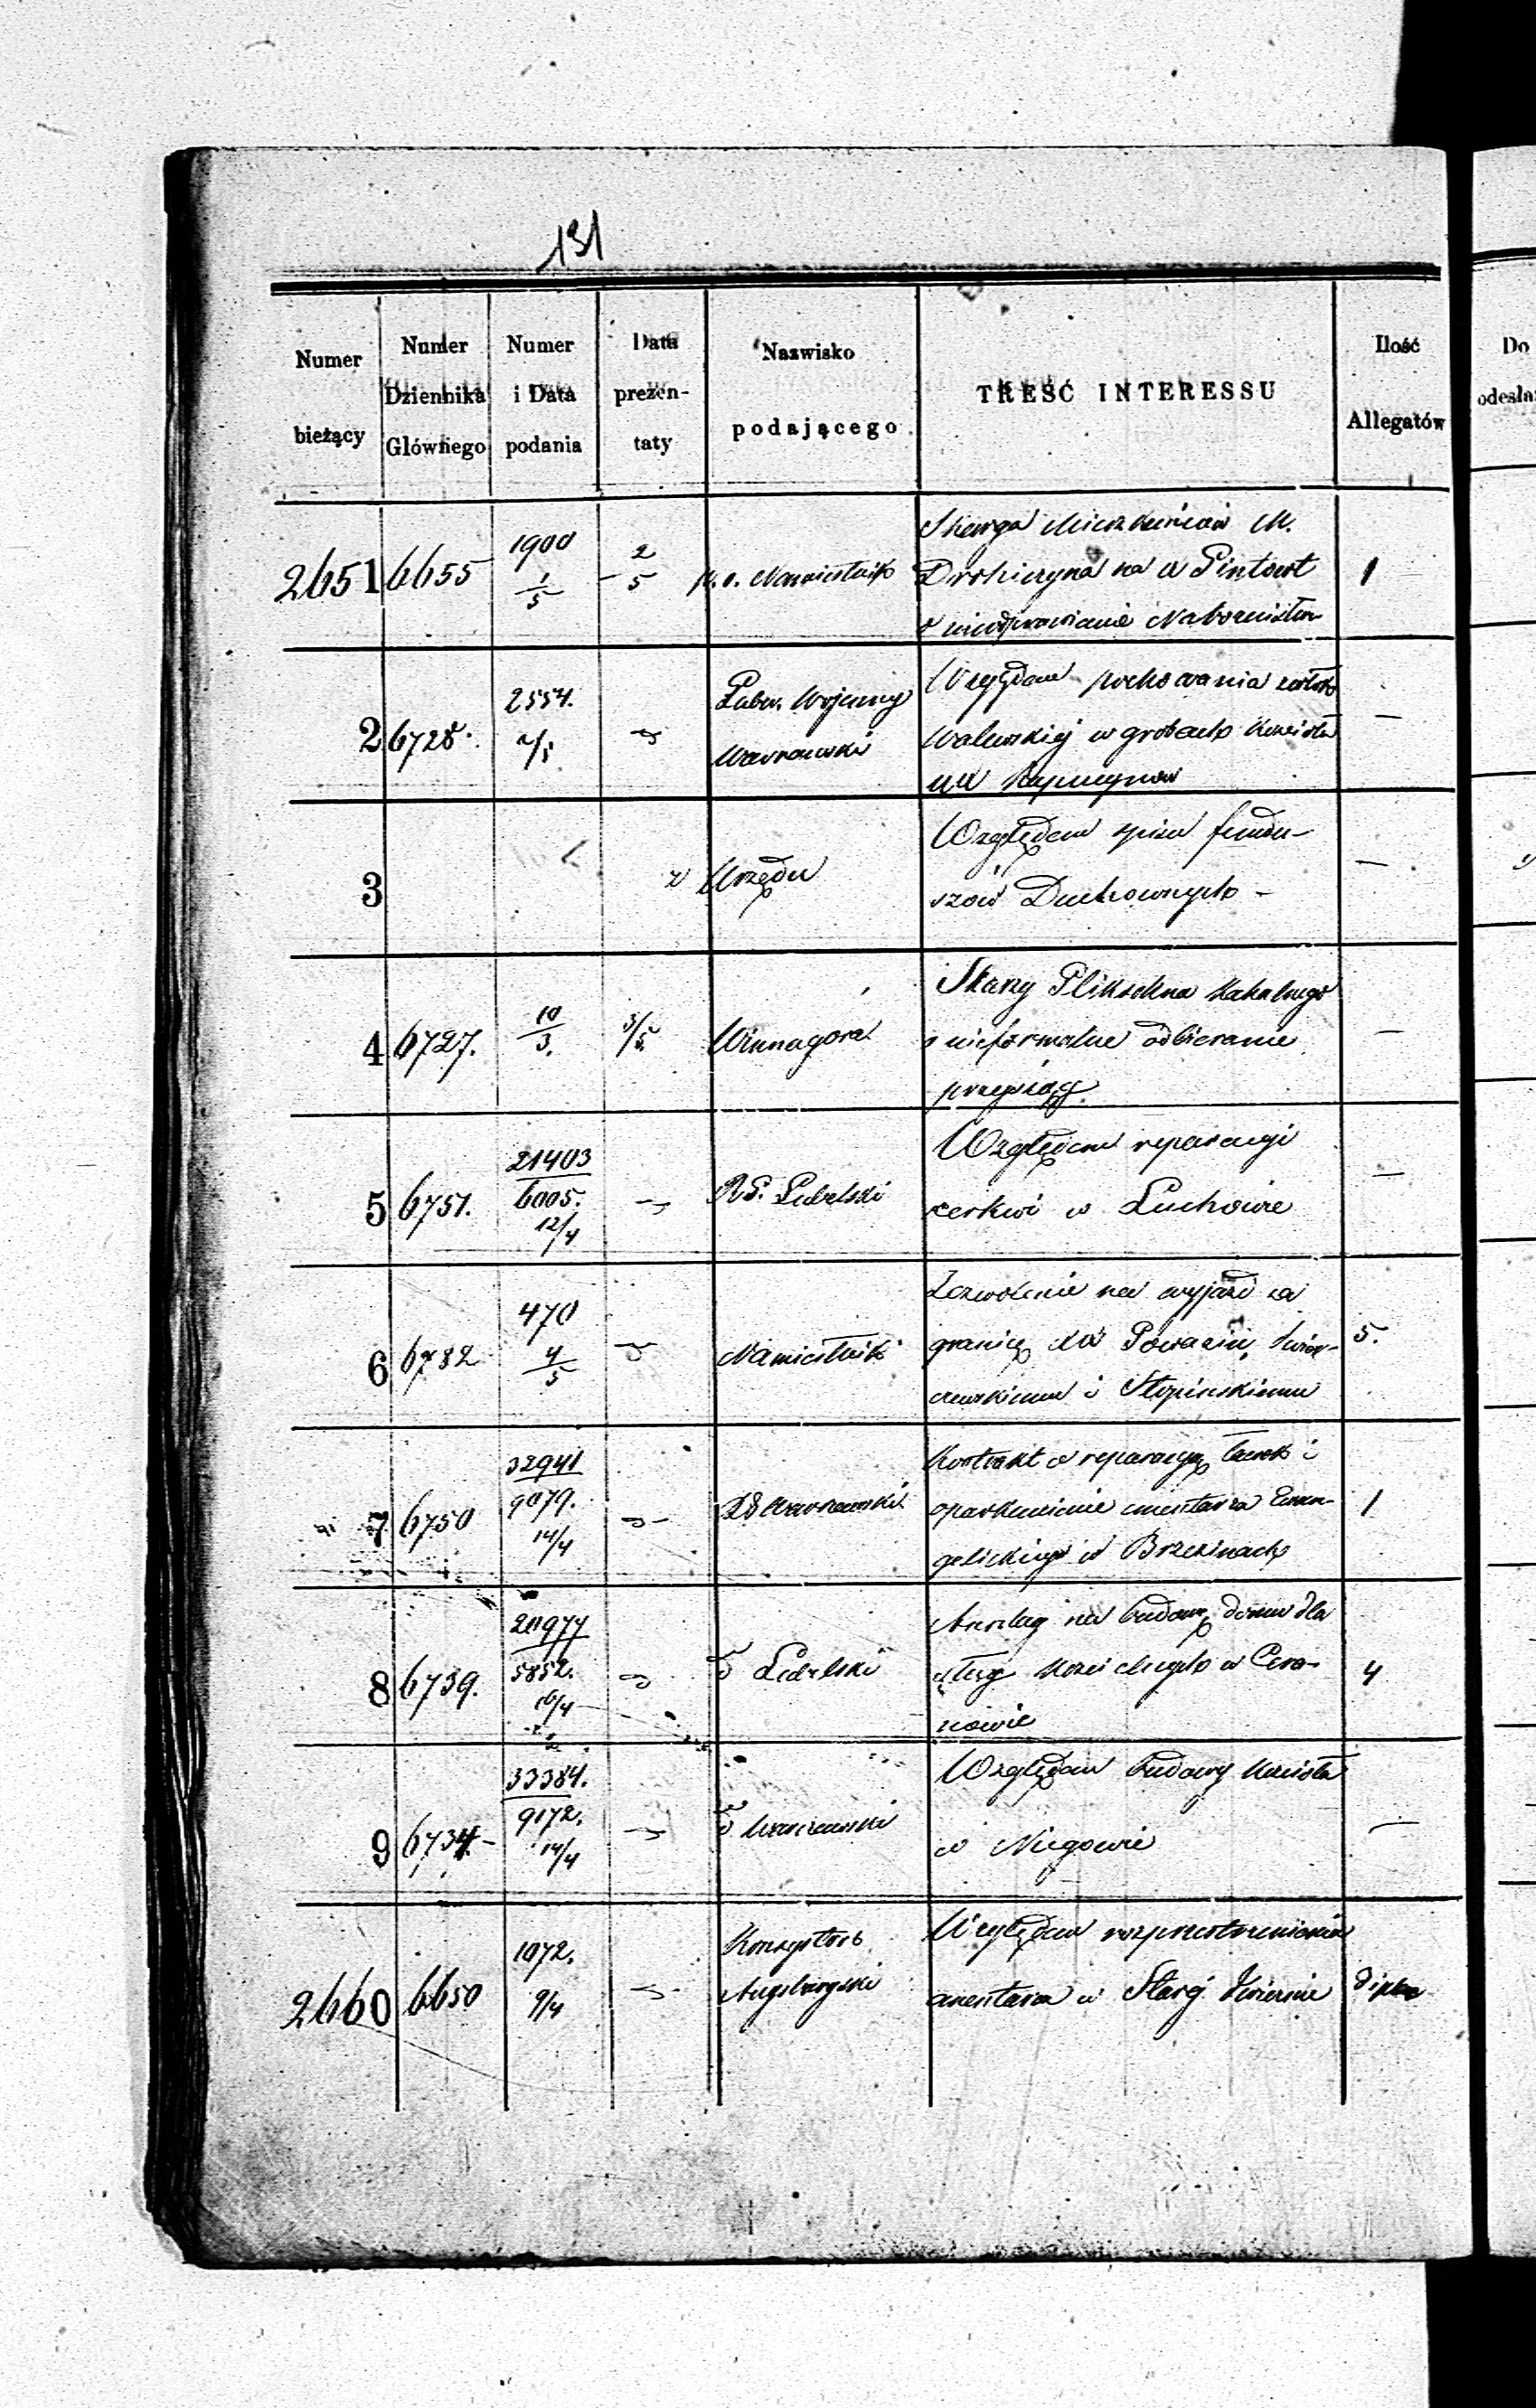 131
Numer bieżący
Numer Dziennika Głównego
Numer i Data podania
Data prezen-taty
Nazwisko podającego
TREŚĆ INTERESSU
Ilość Allegatów
Do
odesła
2651 6655 1900 1/5 2/5 Namiestnik 1
Skarga Mieszkańców M.
Drohiczyna na
2 6728. 2554. 2/5 Warszawski —
Względem pochowania zwłok
Walewskiej w grobach Kościoła
XX Kapucynów
3 z Urzędu —
Względem spisu fundu-
szów Duchownych —
4 6727. 10/3. 3/5. Winnagóra —
Skargi
o nieformalne odbieranie
przysiąg.
5 6751. 21403/6005. 12/4 Lubelski —
Względem reparacyi
cerkwi w Luchowie
6 6782 470 4/5 Namiestnik 5.
Zezwolenie na wyjazd za
granicę
i Stopińskiemu
7 6750 32941/9079. 14/4 Warszawski 1
Kontrakt o reparacyą ławek i
oparkanienie cmentarza Ewan-
gelickiego w Brzezinach
8 6739. 20977/5852. 16/4 Lubelski 4
Anszlag na budowę domu dla
sług kościelnych w Cera-
nowie
9 6734.– 33384./9172. 14/4 Warszawski —
Względem budowy Kościoła
w Niegowie
2660 6650 1072. 9/4 Konsystorz
Augsburgski
Względem rozprzestrzenienia
cmentarza w Starej